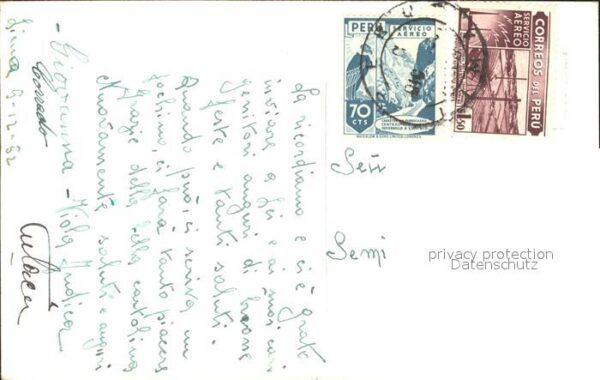 Lima 9-12-52
La ricordiamo e ci è grato
inviare a Lei e ai suoi cari
genitori auguri di buone
feste e tanti saluti.
Quando può, ci scriva un
pochino, ci farà tanto piacere
Grazie della bella cartolina
Nuovamente saluti e auguri
Giovanna - Viola Judica
Corrado
PERU
SERVICIO
AEREO
70
CTS
SERVICIO
AEREO
CORREOS DEL PERU
1.50
Semi
privacy protection
Datenschutz